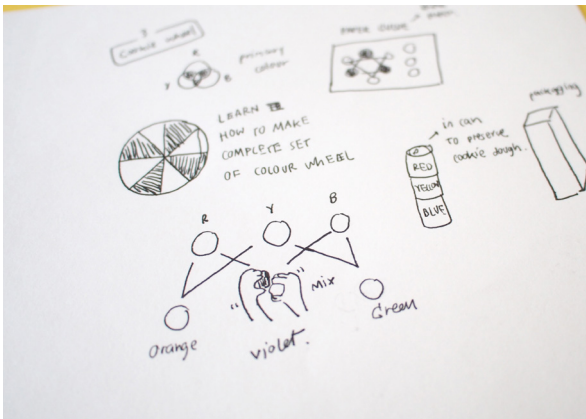 COOKIE WHEEL
R
Y
B
primary
colour
LEARN
HOW TO MAKE
COMPLETE SET
OF COLOUR WHEEL
in can
TO preserve
cookie dough.
RED
YELLOW
BLUE
packaging
R
Y
B
mix
Orange
violet.
Green